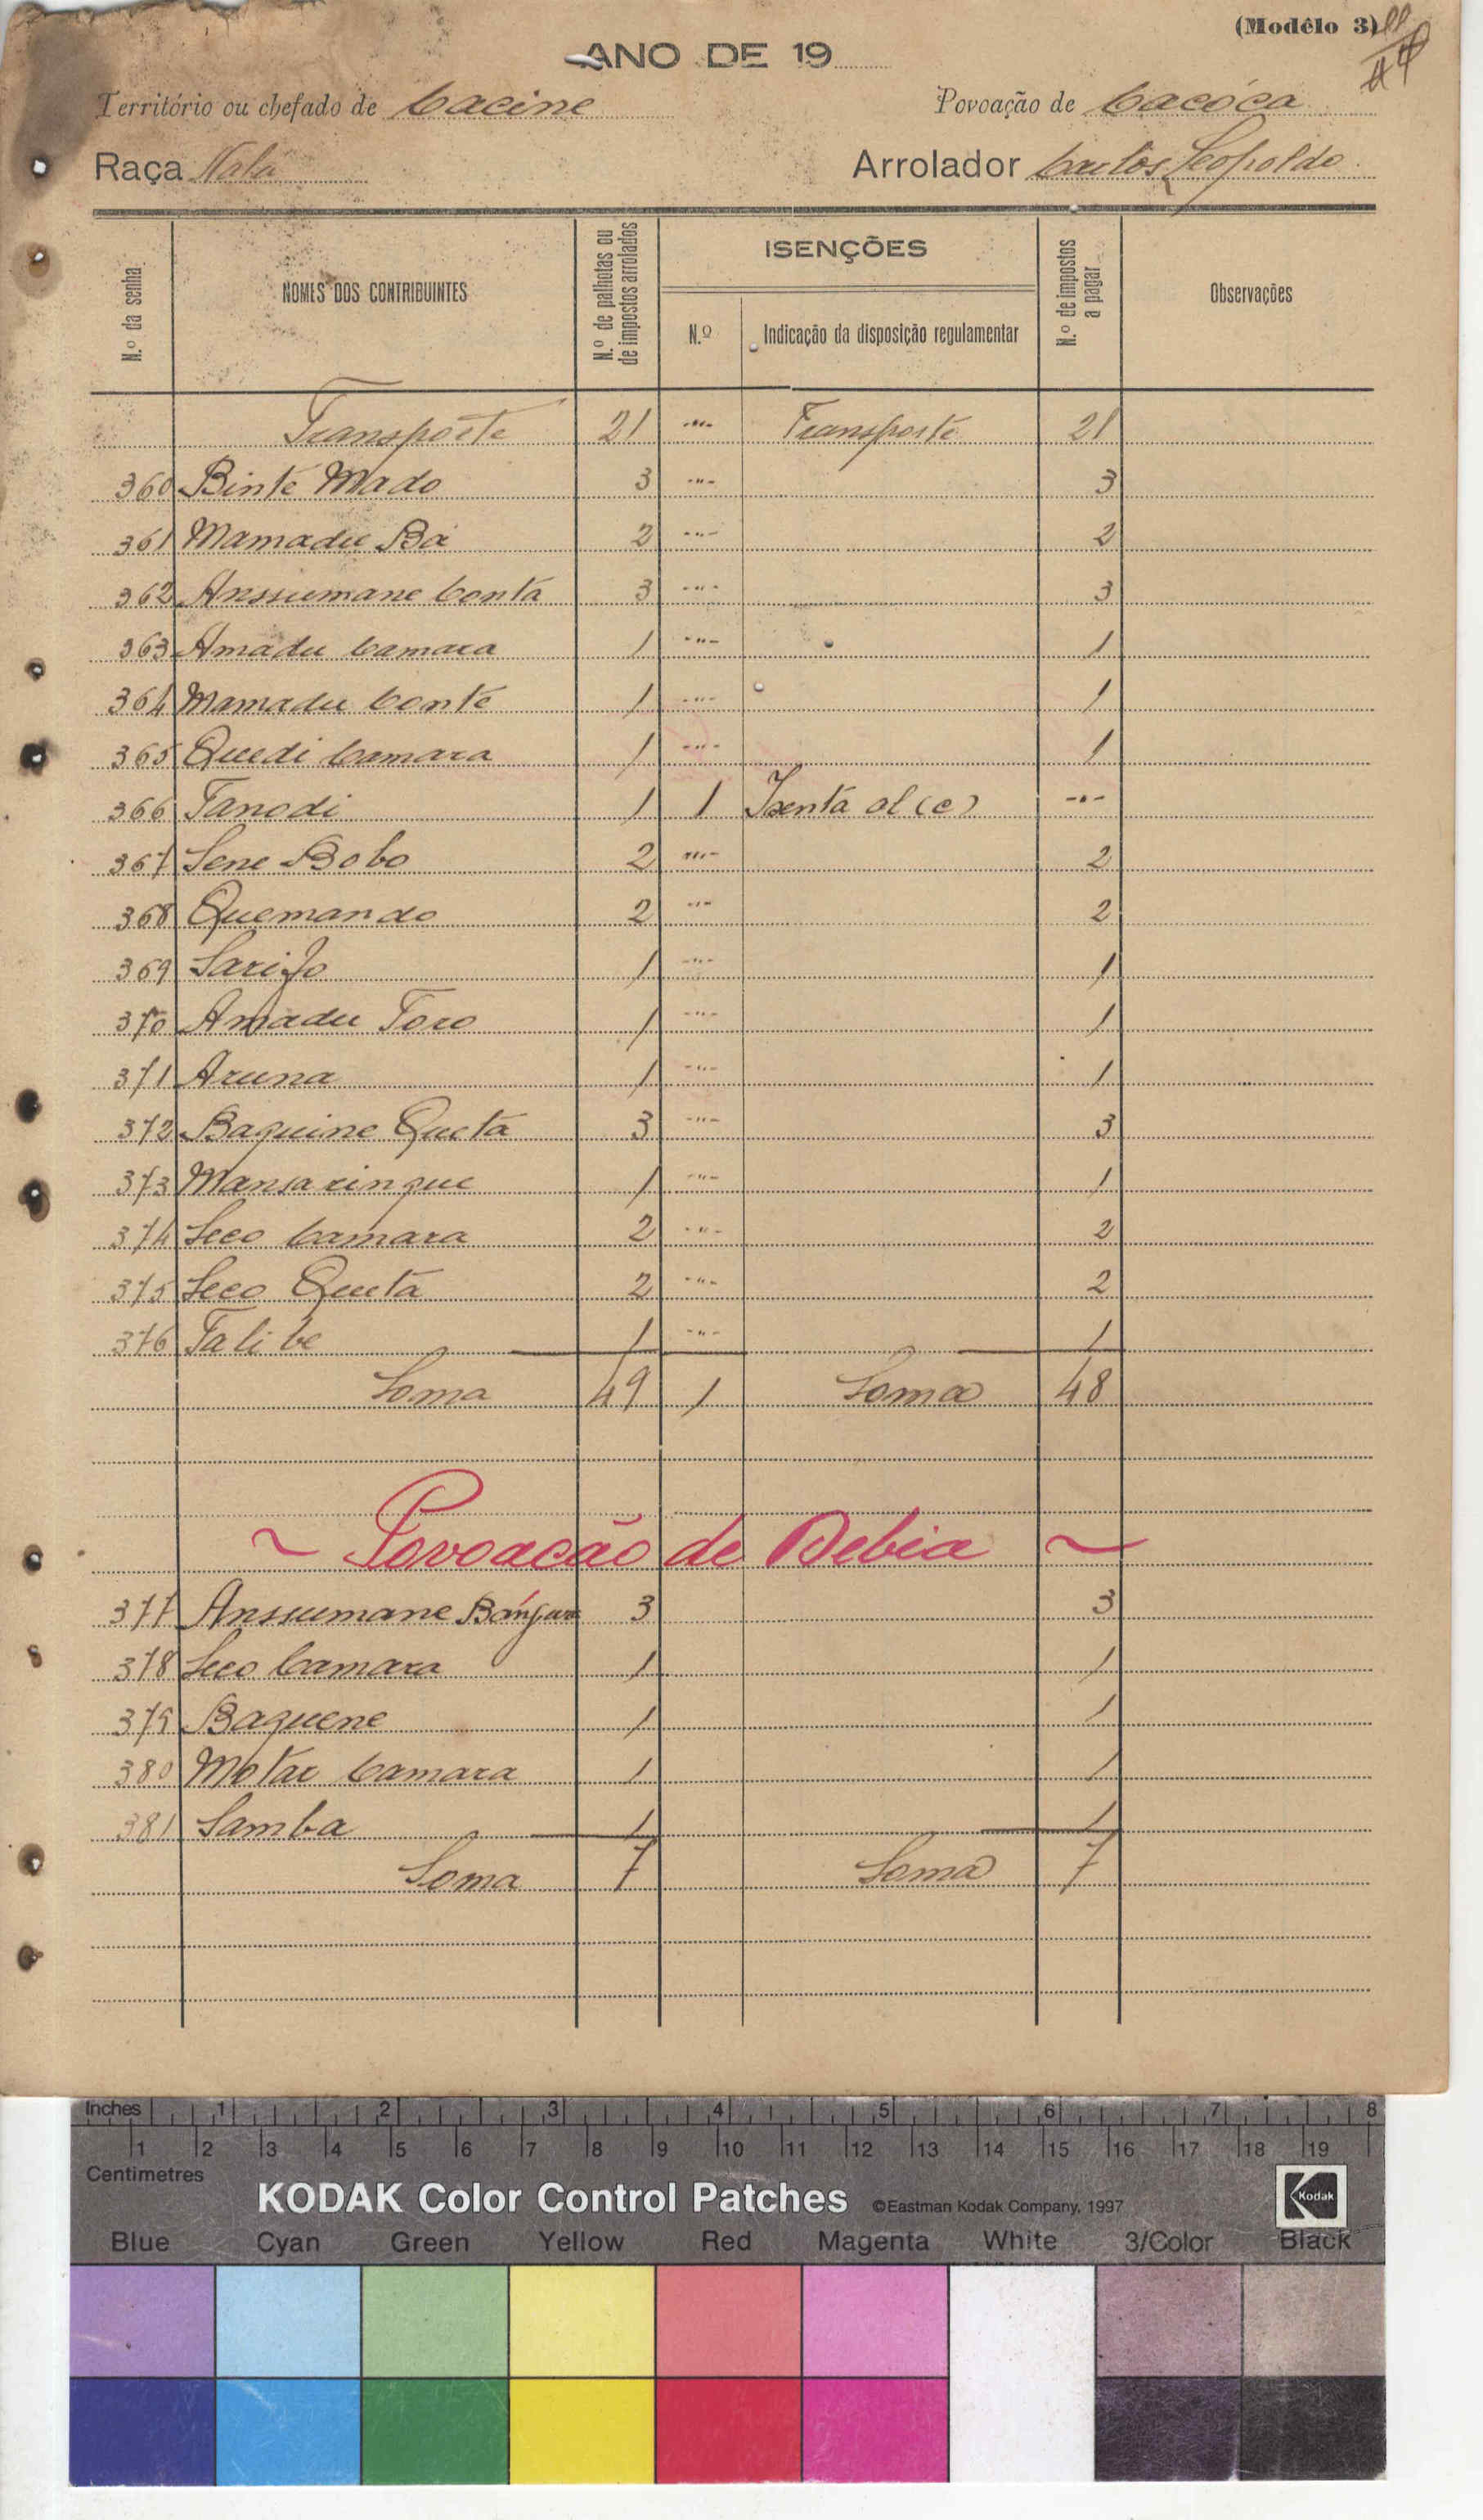 (Modêlo 3)
ANO DE 19
Território ou chefado de Cacine Povoação de Cacóca
Raça Nalú Arrolador Carlos Leopoldo
N.º da senha
NOMES DOS CONTRIBUINTES
N.º de palhotas ou de impostos arrolados
ISENÇÕES
N.º
Indicação da disposição regulamentar
N.º de impostos a pagar
Observações
Transporte 21 -"- Transporte 21
360 Binté Mado 3 -"- 3
361 Mamadu Bá 2 -"- 2
362 Anssumane Contá 3 -"- 3
363 Amadu Camara 1 -"- 1
364 Mamadu Conté 1 -"- 1
365 Quedi Camara 1 -"- 1
366 Tanodi 1 1 Isenta al (e) -"-
367 Sene Bobo 2 -"- 2
368 Quemando 2 -"- 2
369 Sarifo 1 -"- 1
370 Amadu Toro 1 -"- 1
371 Aruna 1 -"- 1
372 Baquine Queta 3 -"- 3
373 Mansarinque 1 -"- 1
374 Seco Camara 2 -"- 2
375 Seco Queta 2 -"- 2
376 Talibe 1 -"- 1
Soma 49 1 Soma 48
~ Povoacão de Debia ~
377 Anssumane Bángura 3 3
378 Seco Camara 1 1
379 Baquene 1 1
380 Motar Camara 1 1
381 Samba 1 1
Soma 7 Soma 7
Inches 1 2 3 4 5 6 7 8
1 2 3 4 5 6 7 8 9 10 11 12 13 14 15 16 17 18 19
Centimetres
KODAK Color Control Patches ©Eastman Kodak Company, 1997 Kodak
Blue Cyan Green Yellow Red Magenta White 3/Color Black